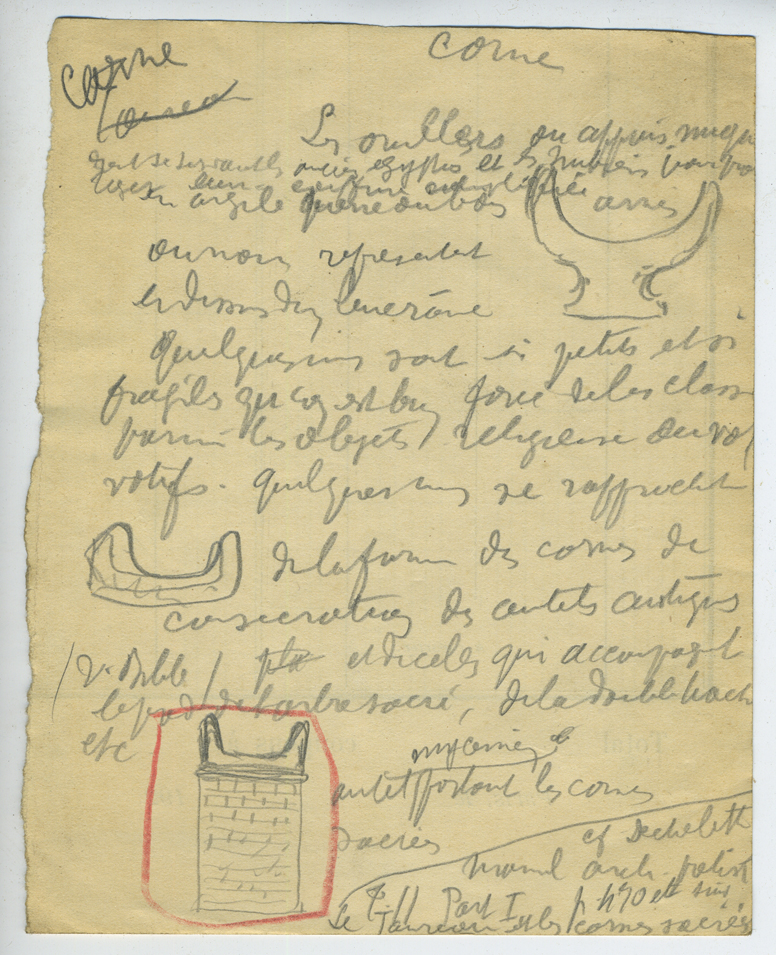 Corne
corne
Taureau
Les oreillers ou appuis nuque
dont se servaient les anciens egyptiens et les
en argile pierre ou bois
ornés
ou non representent
en dessous du
Quelques uns sont si petits et si
fragiles qu'on est bien forcé de les classer
parmi les objets religieux ou
votifs. Quelques uns se rapprochent
de la forme des cornes de
consecration des autels antiques
/ V. Bible / et de celles qui accompagnent
le pied de l'arbre sacré, de la double hache
etc
mycenien
autel portant les cornes
sacrées
cf Dechelette
manuel arch.
T. II Part I p 470 et suiv
Le Taureau et les cornes sacrées